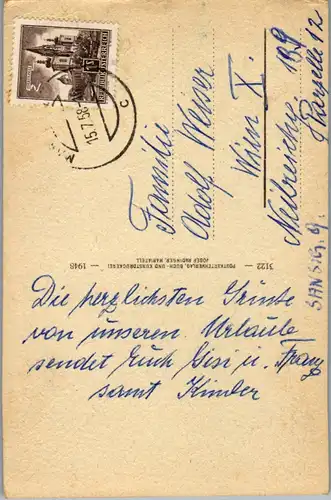 REPUBLIK ÖSTERREICH
15.7.58
C
Familie
Adolf Weiser
Wien X.
Neilreichg 109
Parzelle 12
3122 — POSTKARTENVERLAG, BUCH- UND KUNSTDRUCKEREI — 1948
JOSEF ANDINGER, MARIAZELL
Die herzlichsten Grüsse
von unseren Urlaube
sendet Euch Gisi u. Franz
samt Kinder